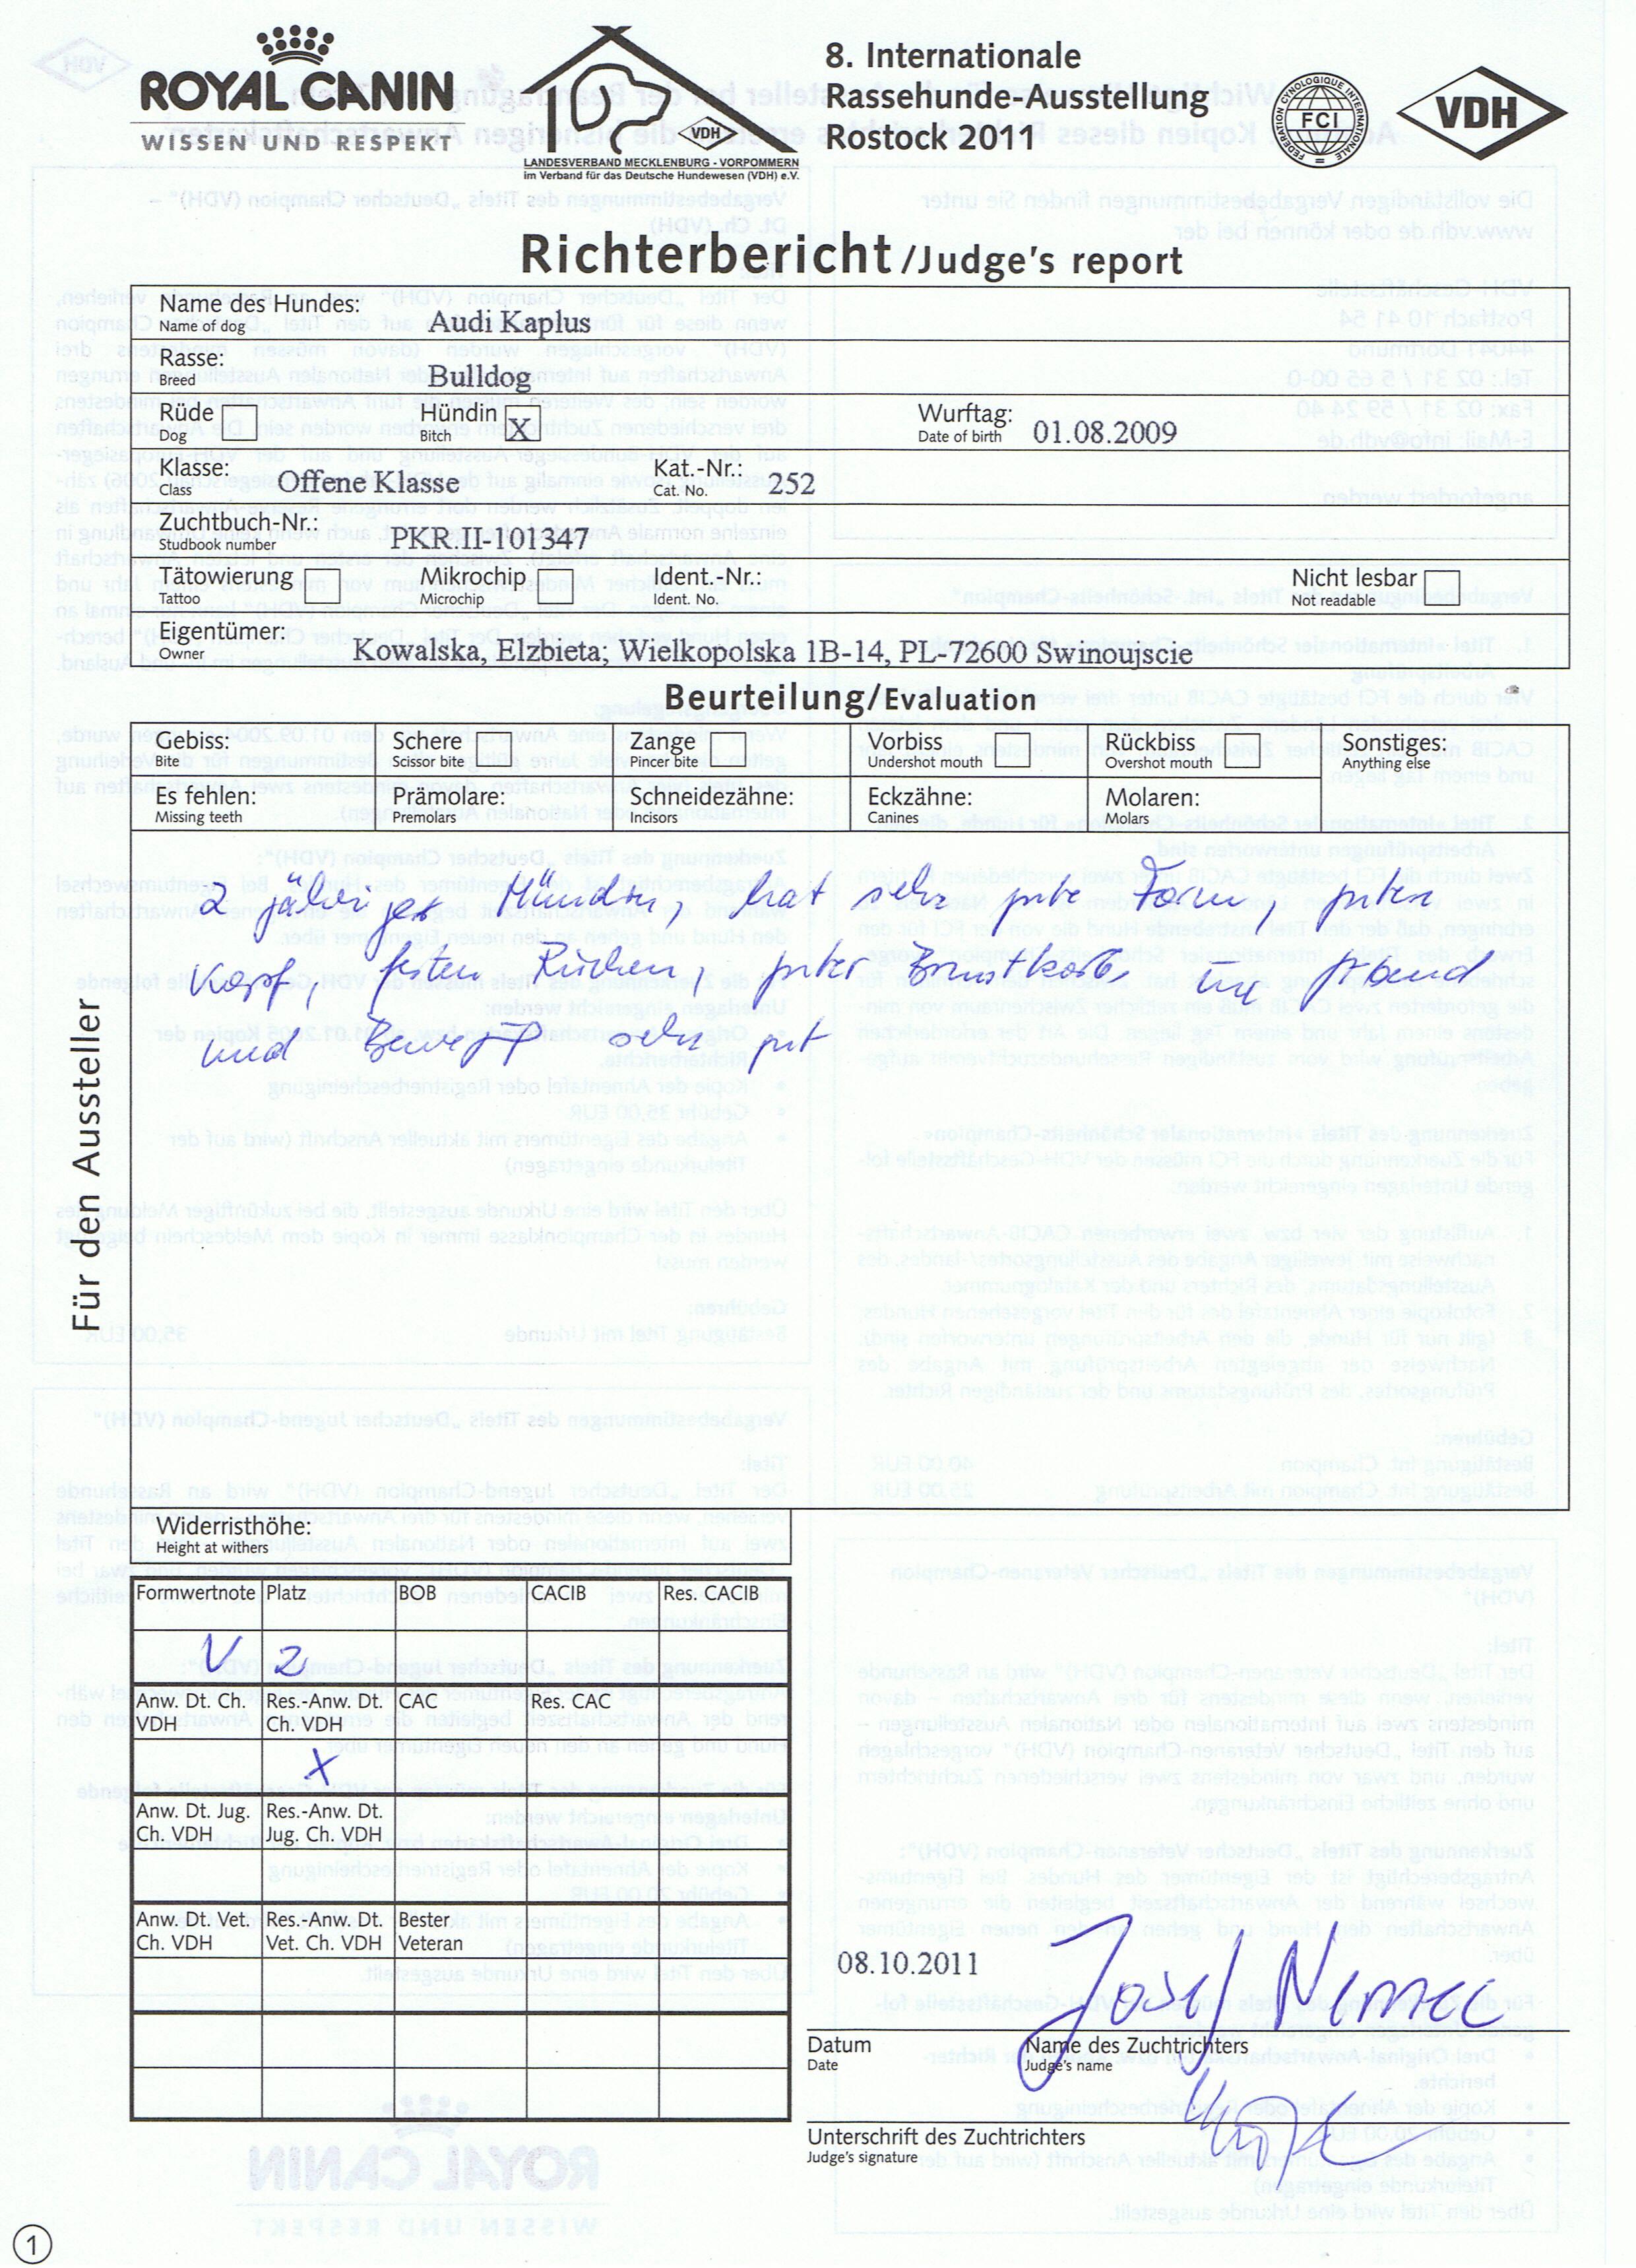 ROYAL CANIN
WISSEN UND RESPEKT
VDH
LANDESVERBAND MECKLENBURG - VORPOMMERN
im Verband für das Deutsche Hundewesen (VDH) e.V.
8. Internationale
Rassehunde-Ausstellung
Rostock 2011
FEDERATION CYNOLOGIQUE INTERNATIONALE
FCI
VDH
Richterbericht/Judge's report
Name des Hundes: Audi Kaplus
Name of dog
Rasse: Bulldog
Breed
Rüde Hündin X Wurftag: 01.08.2009
Dog Bitch Date of birth
Klasse: Offene Klasse Kat.-Nr.: 252
Class Cat. No.
Zuchtbuch-Nr.: PKR.II-101347
Studbook number
Tätowierung Mikrochip Ident.-Nr.: Nicht lesbar
Tattoo Microchip Ident. No. Not readable
Eigentümer: Kowalska, Elzbieta: Wielkopolska 1B-14, PL-72600 Swinoujscie
Owner
Beurteilung/Evaluation
Gebiss: Schere Zange Vorbiss Rückbiss Sonstiges:
Bite Scissor bite Pincer bite Undershot mouth Overshot mouth Anything else
Es fehlen: Prämolare: Schneidezähne: Eckzähne: Molaren:
Missing teeth Premolars Incisors Canines Molars
2 jähriger Hündin, hat sehr gute Form, guten
Kopf, festen Rücken, guter Brustkorb
und sehr gut
Für den Aussteller
Widerristhöhe:
Height at withers
Formwertnote Platz BOB CACIB Res. CACIB
V 2
Anw. Dt. Ch. Res.-Anw. Dt. CAC Res. CAC
VDH Ch. VDH
X
Anw. Dt. Jug. Res.-Anw. Dt.
Ch. VDH Jug. Ch. VDH
Anw. Dt. Vet. Res.-Anw. Dt. Bester
Ch. VDH Vet. Ch. VDH Veteran
08.10.2011 Josef Nemec
Datum Name des Zuchtrichters
Date Judge's name
Unterschrift des Zuchtrichters
Judge's signature
1